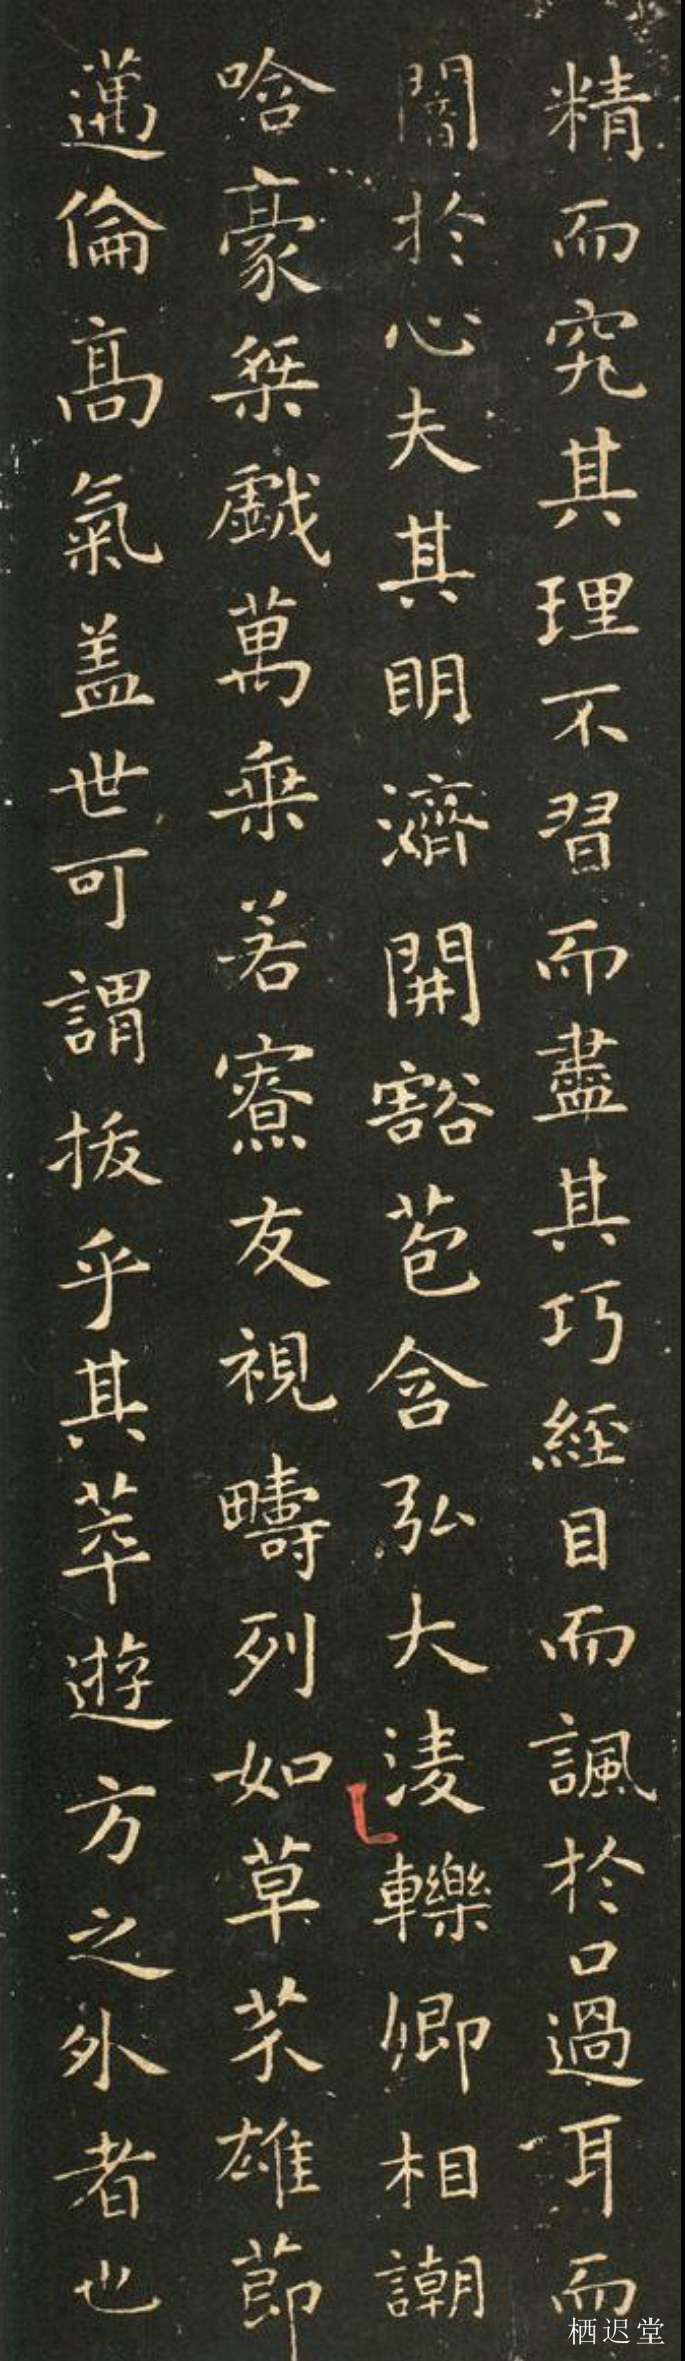 精而究其理不習而盡其巧經目而諷於口過耳而
闇於心夫其明濟開豁苞含弘大淩轢卿相嘲
哈豪桀戲萬乘若寮友視疇列如草芥雄節
邁倫高氣蓋世可謂拔乎其萃遊方之外者也
栖迟堂